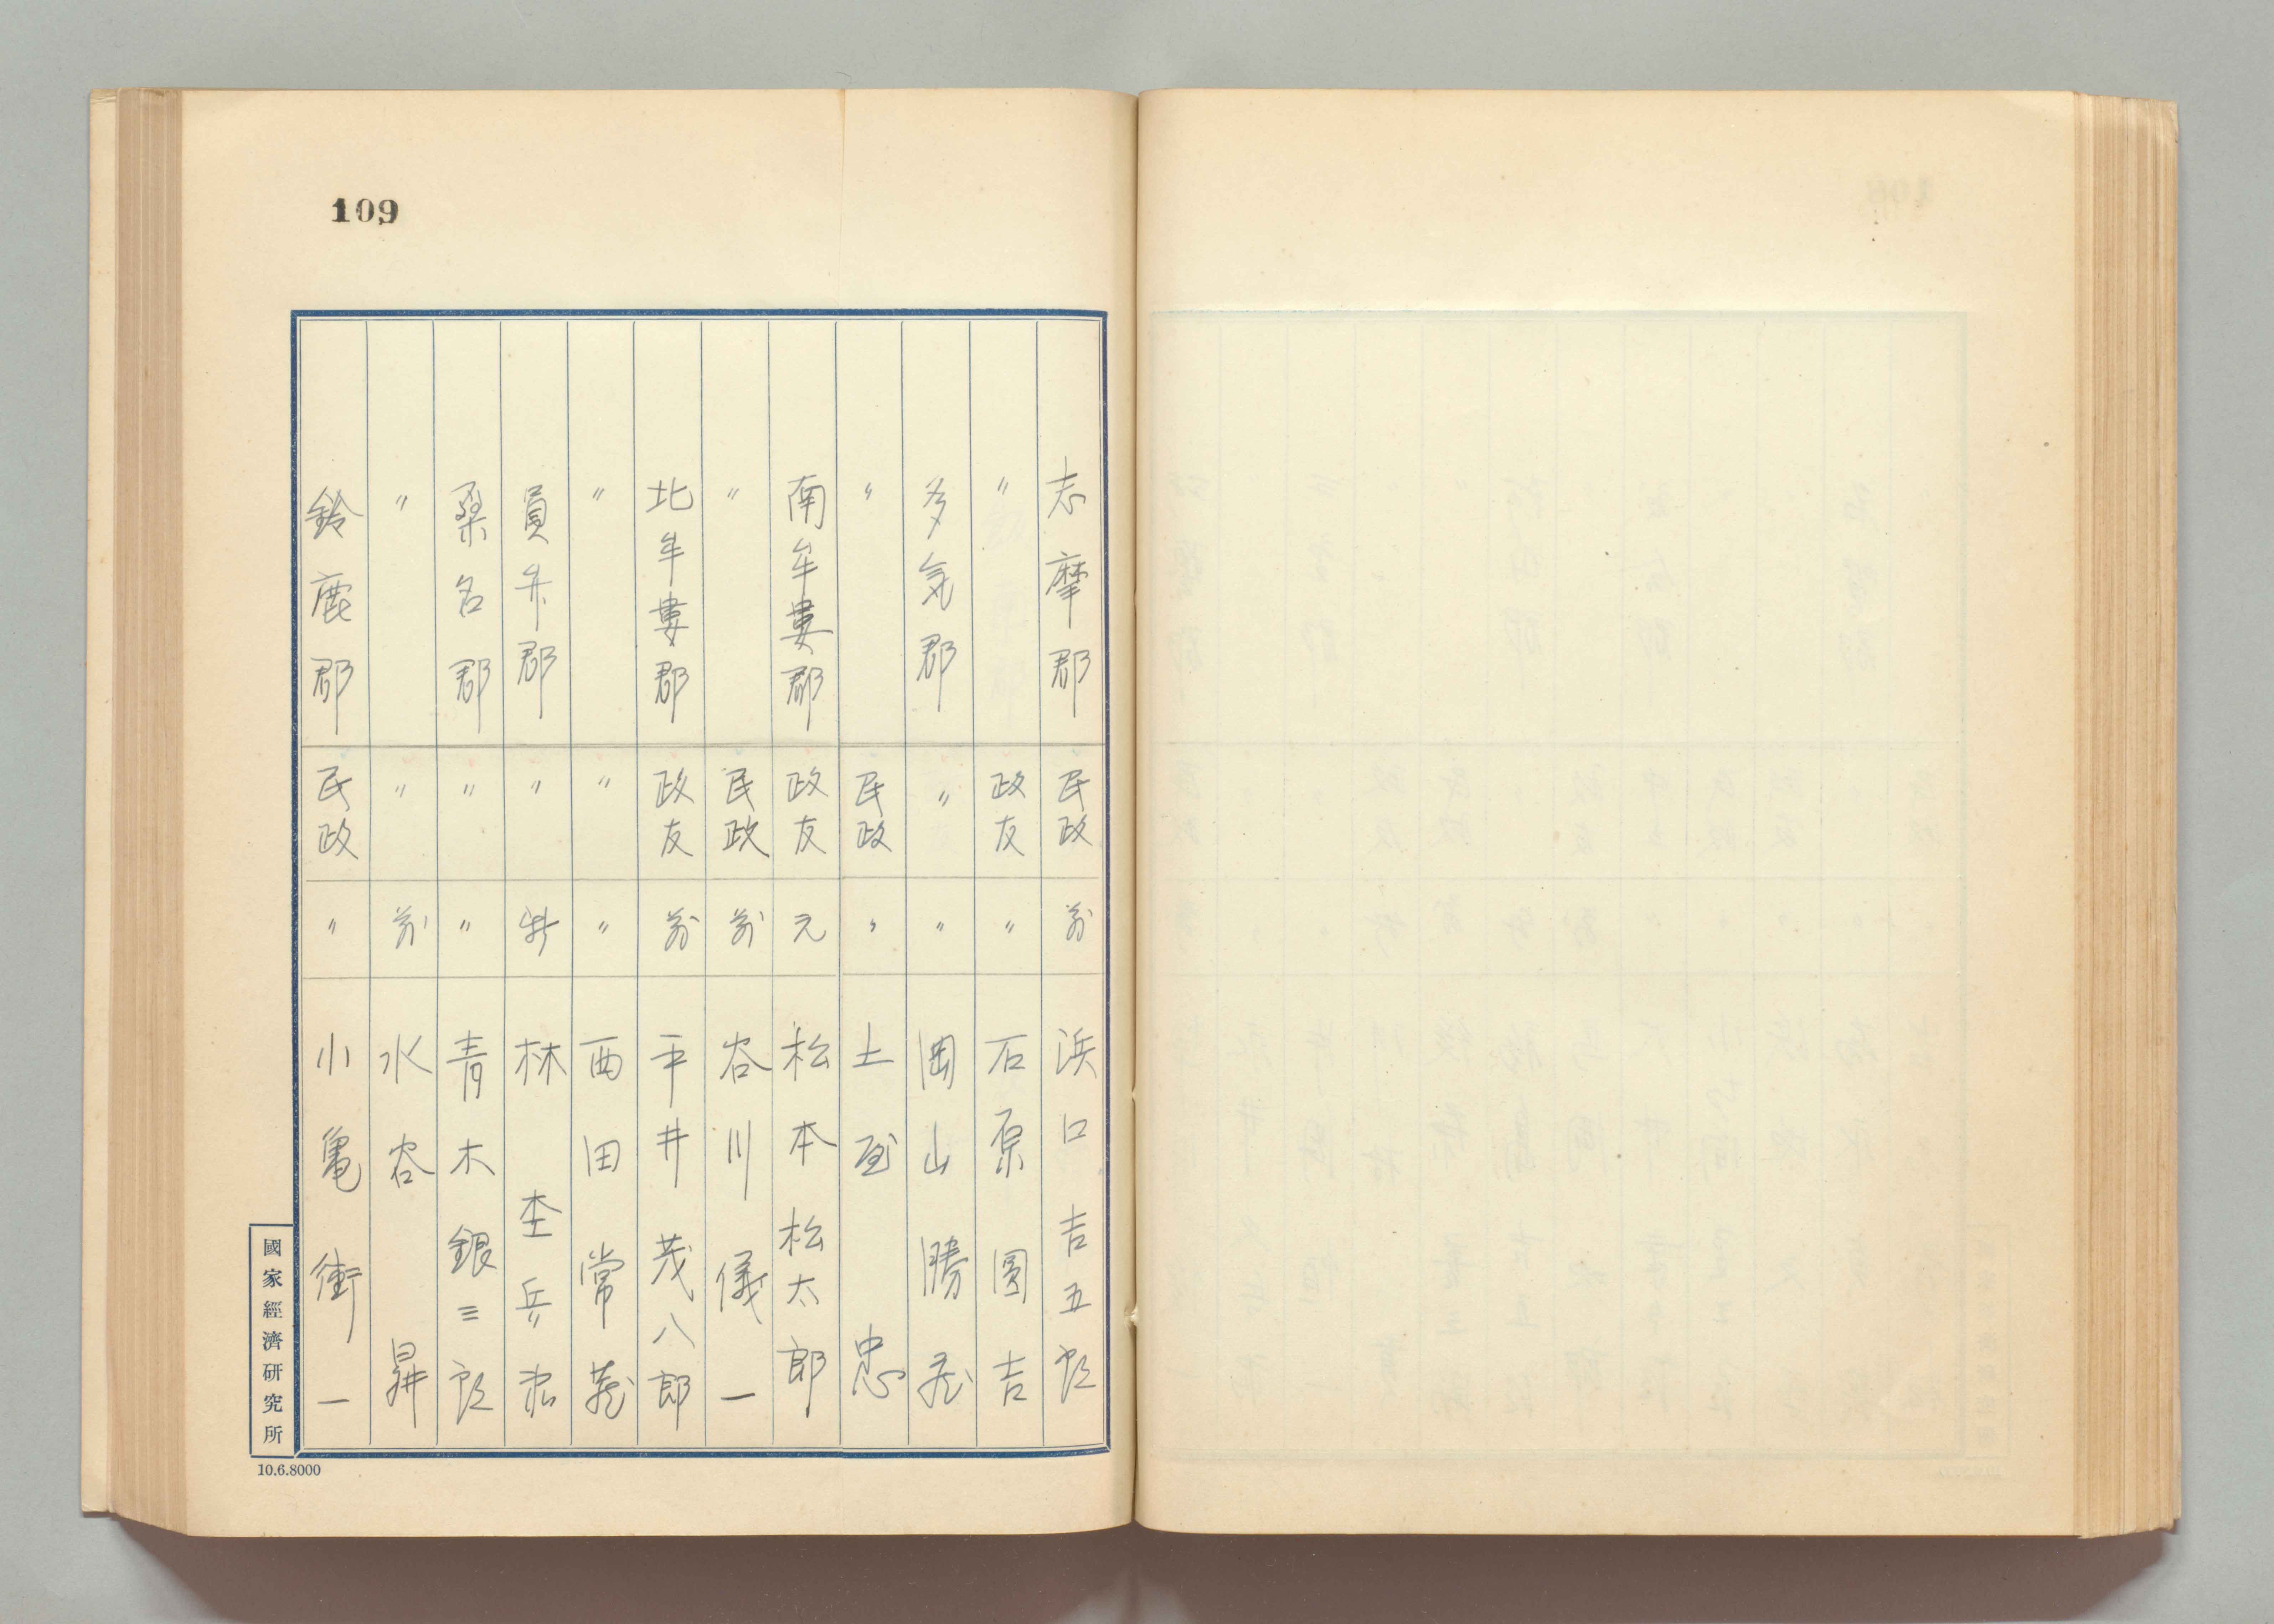 109
志摩郡 民政 前 浜口吉五郎
〃 政友 〃 石原圓吉
多気郡 〃 〃 岡山勝蔵
〃 民政 〃 土屋 忠
南牟婁郡 政友 元 松本松太郎
〃 民政 前 谷川儀一
北牟婁郡 政友 前 平井茂八郎
〃 〃 〃 西田常蔵
員弁郡 〃 新 林 杢兵
桑名郡 〃 〃 青木銀三郎
〃 〃 前 水谷 昇
鈴鹿郡 民政 〃 小亀衝一
國家經濟研究所
10.6.8000